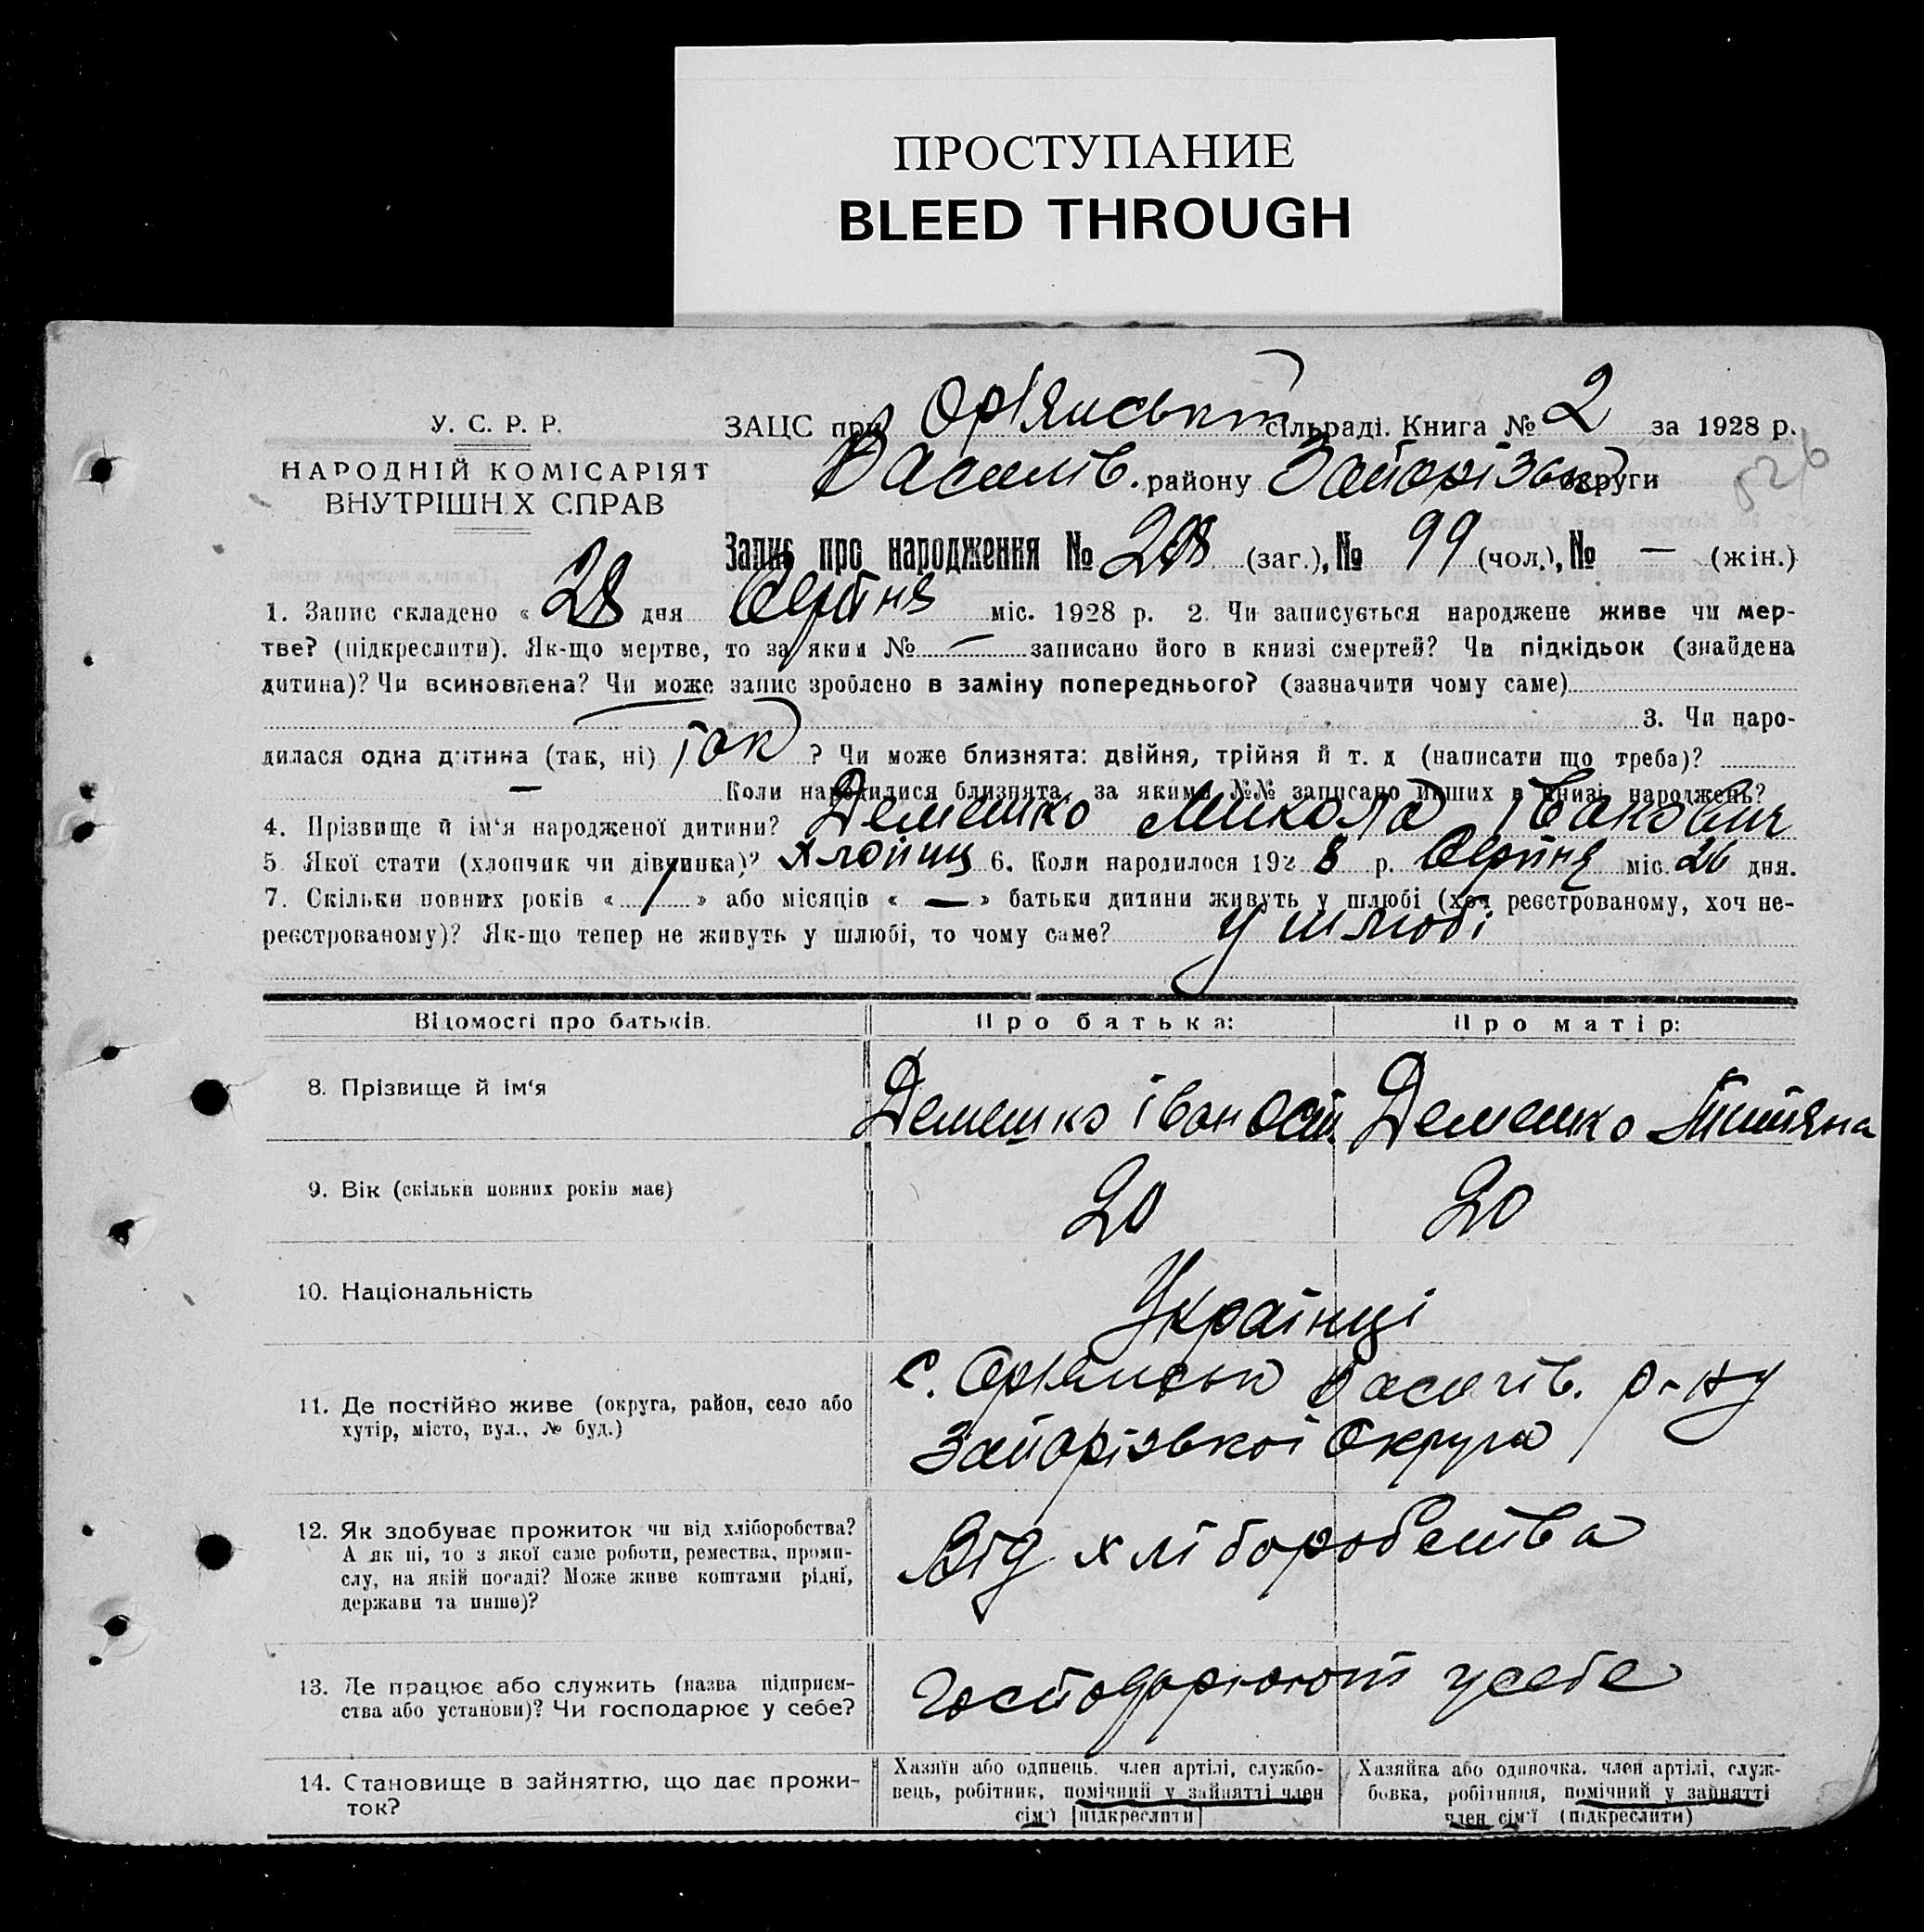 ПРОСТУПАНИЕ
BLEED THROUGH
У. С. Р. Р.
НАРОДНІЙ КОМІСАРІЯТ
ВНУТРІШНІХ СПРАВ
ЗАЦС при Орʼянській сільраді. Книга № 2 за 1928 р.
Василів. району Запорізької округи
526
Запис про народження № 208 (заг.), № 99 (чол.), № — (жін.)
1. Запис складено « 28 дня Серпня міс. 1928 р. 2. Чи записується народжене живе чи мер-
тве? (підкреслити). Як-що мертве, то за яким № — записано його в книзі смертей? Чи підкідьок (знайдена
дитина)? Чи всиновлена? Чи може запис зроблено в заміну попереднього? (зазначити чому саме)
3. Чи наро-
дилася одна дитина (так, ні) так ? Чи може близнята: двійня, трійня й т. д (написати що треба)?
— Коли народилися близнята, за якими №№ записано инших в книзі народжень?
4. Прізвище й ім‘я народженої дитини? Демешко Микола Іванович
5 Якої стати (хлопчик чи дівчинка)? Хлопиц 6. Коли народилося 1928 р. Серпня міс. 26 дня.
7. Скільки повних років « 1 » або місяців « — » батьки дитини живуть у шлюбі (хоч реєстрованому, хоч не-
реєстрованому)? Як-що тепер не живуть у шлюбі, то чому саме? У шлюбі
Відомості про батьків. Про батька: Про матір:
8. Прізвище й ім‘я Демешко Іван Ост. Демешко Титяна
9. Вік (скільки повних років має) 20 20
10. Національність Українці
11. Де постійно живе (округа, район, село або
хутір, місто, вул., № буд.)
с. Орʼянськ Василів. р-ну
Запорізької Округи
12. Як здобуває прожиток чи від хліборобства?
А як ні, то з якої саме роботи, ремества, проми-
слу, на якій посаді? Може живе коштами рідні,
держави та инше)?
Від хліборобства
13. Де працює або служить (назва підприєм-
ства або установи)? Чи господарює у себе?
Господарюют у себе
14. Становище в зайняттю, що дає прожи-
ток?
Хазяїн або одинець. член артілі, службо-
вець, робітник, помічний у зайнятті член
сім‘ї [підкреслити]
Хазяйка або одиночка. член артілі, служ-
бовка, робітниця, помічний у зайнятті
член сім‘ї (підкреслити)